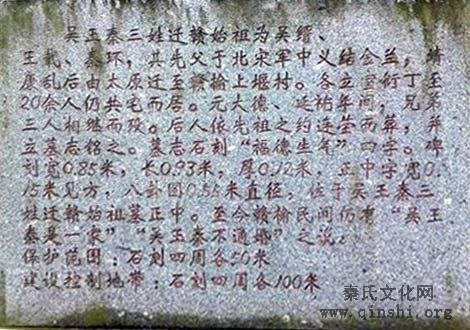 吴王秦三姓迁赣始祖为吴缙、
王戟、秦环，其先父于北宋军中义结金兰，靖
康乱后由太原迁至赣榆上堰村。各立室衍丁至
20余人仍共宅而居。元大德、延祐年间，兄弟
三人相继而殁。后人依先祖之约连茔而葬，并
立墓志铭之。墓志石刻“福德生气”四字。碑
刻宽0.85米，长0.93米，厚0.12米，正中字宽0.
15米见方，八卦图0.55米直径，位于吴王秦三
姓迁赣始祖墓正中。至今赣榆民间仍有“吴王
秦是一家”“吴王秦不通婚”之说。
保护范围：石刻四周各50米
建设控制地带：石刻四周各100米
秦氏文化网
www.qinshi.org